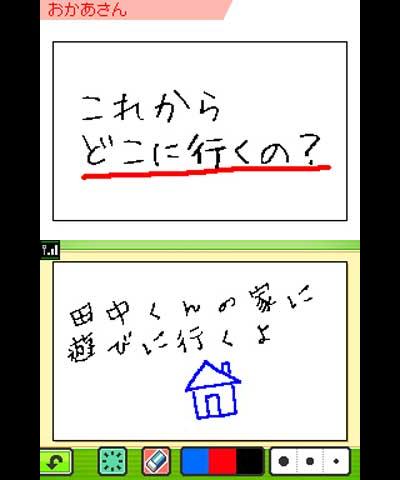 おかあさん
これから
どこに行くの？
田中くんの家に
遊びに行くよ